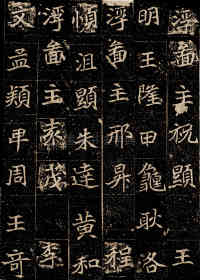 浮啚主祝顯王
明王隆甲龜耿洛
浮啚主邢昇程
慎沮顯朱達黃和
浮啚主茂李
文孟甲周王奇